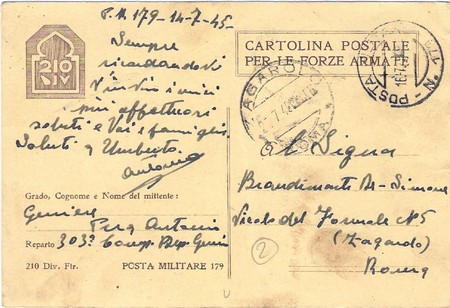 P.M. 179 - 14-7-45-
Sempre
ricordandovi
invio i miei
più affettuosi
saluti a Voi famiglia
Saluti a Umberto
Antonio
210
DIV
CARTOLINA POSTALE
PER LE FORZE ARMATE
N. 179
POSTA
ZAGAROLO
ROMA
Al Signor
Brandimarti De-Simone
Vicolo del Formale N°5
(Zagarolo)
Roma
Grado, Cognome e Nome del mittente:
Geniere
Antonio
Reparto 303ª Comp. Genio
210 Div. Ftr.
POSTA MILITARE 179
2